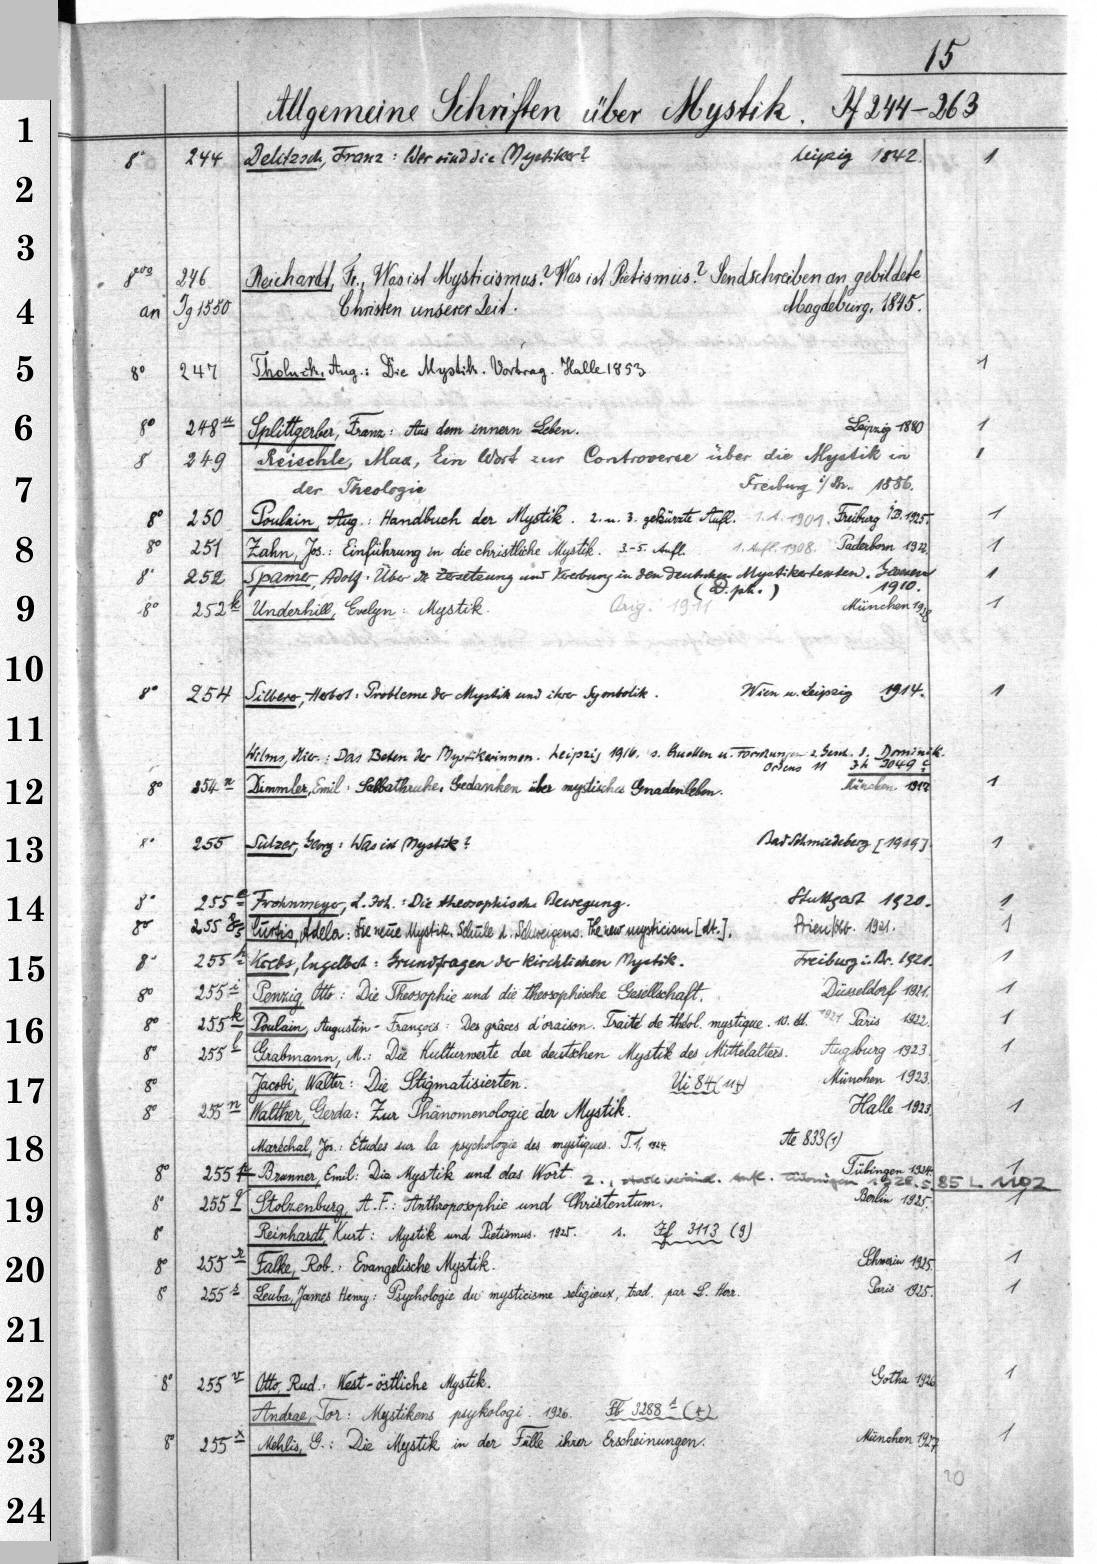 15
Allgemeine Schriften über Mystik. If 244-263
1
8° 244 Delitzsch, Franz: Wer sind die Mystiker? Leipzig 1842. 1
2
3
8° 246 Reichardt, Fr., Was ist Mysticismus? Was ist Pietismus? Sendschreiben an gebildete
4
an Ig 1550 Christen unserer Zeit. Magdeburg, 1845.
5
8° 247 Tholuck, Aug.: Die Mystik. Vortrag. Halle 1853 1
6
8° 248 u Splittgerber, Franz: Aus dem innern Leben. Leipzig 1880 1
8 249 Reischle, Max, Ein Wort zur Controverse über die Mystik in 1
7
der Theologie Freiburg i/Br. 1886.
8° 250 Poulain, Aug.: Handbuch der Mystik. 2. u. 3. gekürzte Aufl. 1. A. 1901. Freiburg i.B. 1925. 1
8
8° 251 Zahn, Jos.: Einführung in die christliche Mystik. 3-5. Aufl. 1. Aufl. 1908. Paderborn 1922. 1
8° 252 Spamer, Adolf: Über die Zersetzung und Vererbung in den deutschen Mystikertexten. Giessen 1
(D. ph.) 1910.
9
8° 252 k Underhill, Evelyn: Mystik. Orig. 1911 München 1928 1
10
8° 254 Silberer, Herbert: Probleme der Mystik und ihrer Symbolik. Wien u. Leipzig 1914. 1
11
Wilms, Hier.: Das Beten der Mystikerinnen. Leipzig 1916. s. Quellen u. Forschungen z. Gesch. d. Dominik.
Ordens 11
12
8° 254 n Dimmler, Emil: Sabbathruhe. Gedanken über mystisches Gnadenleben. München 1918 1
13
8° 255 Sulzer, Georg: Was ist Mystik? Bad Schmiedeberg [1919] 1
14
8° 255 e Frohnmeyer, L. Joh.: Die theosophische Bewegung. Stuttgart 1920. 1
8° 255 Curtis, Adela: Die neue Mystik. Schule d. Schweigens. The new mysticism [dt.]. Prien/Obb. 1921. 1
15
8° 255 h Krebs, Engelbert: Grundfragen der kirchlichen Mystik. Freiburg i. Br. 1921. 1
8° 255 i Penzig, Otto: Die Theosophie und die theosophische Gesellschaft. Düsseldorf 1921. 1
16
8° 255 k Poulain, Augustin-François: Des grâces d'oraison. Traité de théol. mystique. 10. éd. 1921 Paris 1922. 1
8° 255 l Grabmann, M.: Die Kulturwerte der deutschen Mystik des Mittelalters. Augsburg 1923. 1
17
8° Jacobi, Walter: Die Stigmatisierten. Ui 84 (114) München 1923.
8° 255 n Walther, Gerda: Zur Phänomenologie der Mystik. Halle 1923. 1
18
Maréchal, Jos.: Études sur la psychologie des mystiques. T. 1, 1924. Ae 833 (1)
8° 255 p Brunner, Emil: Die Mystik und das Wort Tübingen 1924. 1
2., stark veränd. Aufl. Tübingen 1928. s. 85 L 1102
19
8° 255 q Stolzenburg, A. F.: Anthroposophie und Christentum. Berlin 1925. 1
8° Reinhardt, Kurt: Mystik und Pietismus. 1925. s. Zf 3113 (9)
20
8° 255 r Falke, Rob.: Evangelische Mystik. Schwerin 1925. 1
8° 255 s Leuba, James Henry: Psychologie du mysticisme religieux, trad. par L. Herr. Paris 1925. 1
21
22
8° 255 v Otto, Rud.: West-östliche Mystik. Gotha 1926 1
Andrae, Tor: Mystikens psykologi. 1926. Fb 3288 d (4)
23
8° 255 x Mehlis, G.: Die Mystik in der Fülle ihrer Erscheinungen. München 1927. 1
20
24